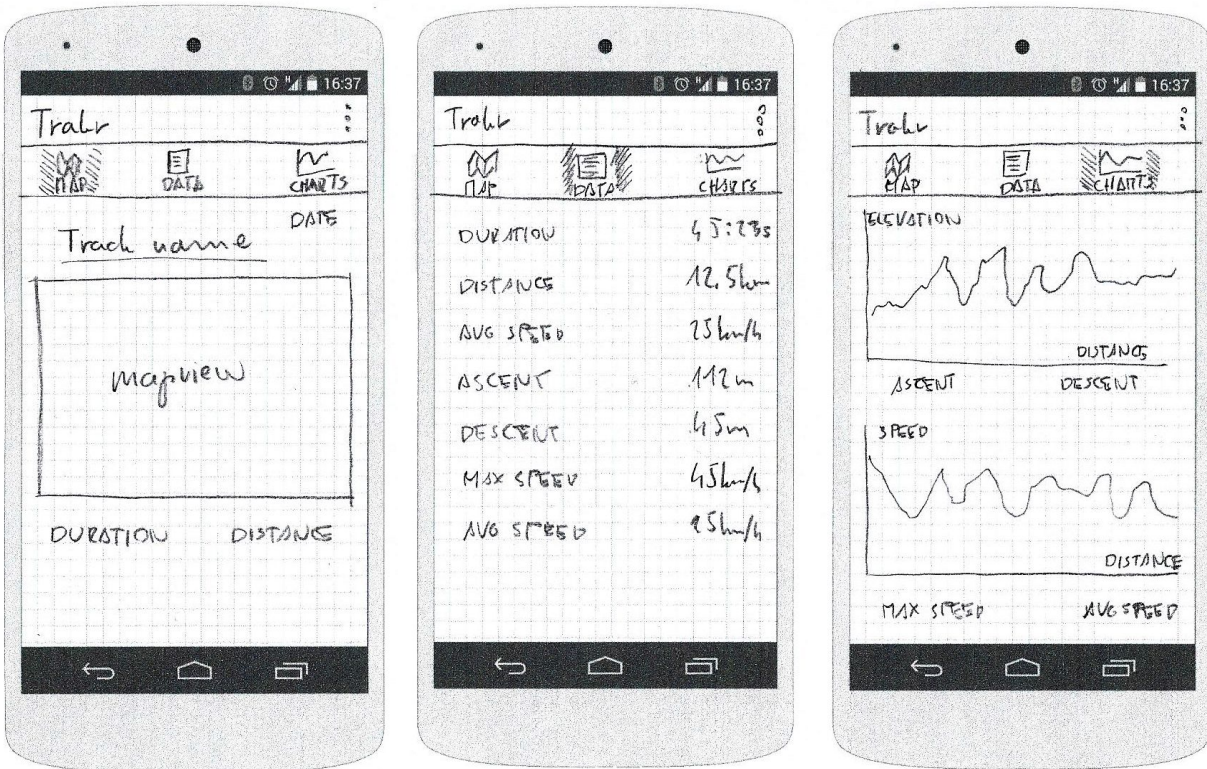 16:37
Trakr
MAP DATA CHARTS
DATE
Track name
mapview
DURATION DISTANCE
16:37
Trakr
MAP DATA CHARTS
DURATION 45:23s
DISTANCE 12,5km
AVG SPEED 25km/h
ASCENT 112m
DESCENT 45m
MAX SPEED 45km/h
AVG SPEED 25km/h
16:37
Trakr
MAP DATA CHARTS
ELEVATION
DISTANCE
ASCENT DESCENT
SPEED
DISTANCE
MAX SPEED AVG SPEED